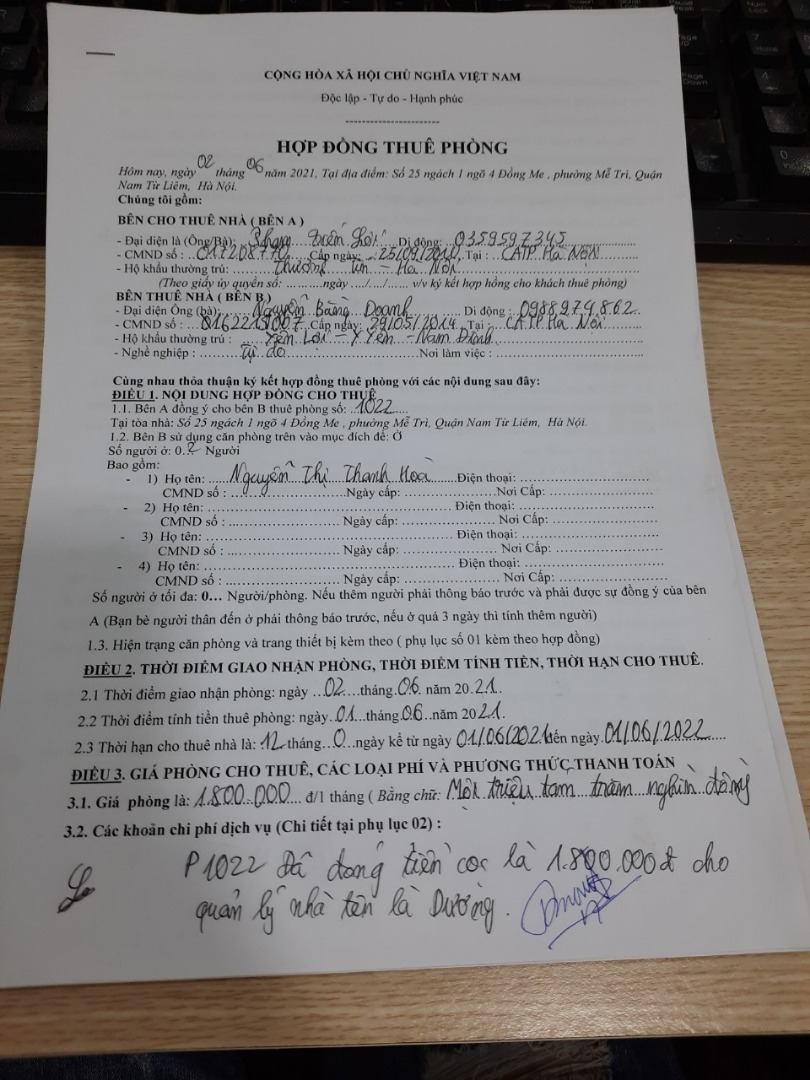 CỘNG HÒA XÃ HỘI CHỦ NGHĨA VIỆT NAM
Độc lập - Tự do - Hạnh phúc
HỢP ĐỒNG THUÊ PHÒNG
Hôm nay, ngày 02 tháng 06 năm 2021, Tại địa điểm: Số 25 ngách 1 ngõ 4 Đồng Me , phường Mễ Trì, Quận
Nam Từ Liêm, Hà Nội.
Chúng tôi gồm:
BÊN CHO THUÊ NHÀ ( BÊN A )
- Đại diện là (Ông/Bà): Phạm Di động: 0359597345
- CMND số : 017208770 Cấp ngày: 25/09/2010 Tại : CATP Hà Nội
- Hộ khẩu thường trú: Thường Tín - Hà Nội
(Theo giấy ủy quyền số: ............ngày ..../..../...... v/v ký kết hợp hồng cho khách thuê phòng)
BÊN THUÊ NHÀ ( BÊN B )
- Đại diện Ông (bà): Nguyễn Doanh Di động : 0988.974.862
- CMND số : Cấp ngày: 29/05/2014 Tại : CATP Hà Nội
- Hộ khẩu thường trú : Yên Lợi - Ý Yên - Nam Định
- Nghề nghiệp : Tự do Nơi làm việc :
Cùng nhau thỏa thuận ký kết hợp đồng thuê phòng với các nội dung sau đây:
ĐIỀU 1. NỘI DUNG HỢP ĐỒNG CHO THUÊ
1.1. Bên A đồng ý cho bên B thuê phòng số: 1022
Tại tòa nhà: Số 25 ngách 1 ngõ 4 Đồng Me , phường Mễ Trì, Quận Nam Từ Liêm, Hà Nội.
1.2. Bên B sử dụng căn phòng trên vào mục đích để: Ở
Số người ở: 0.2 Người
Bao gồm:
- 1) Họ tên: Nguyễn Thị Thanh Hoài Điện thoại:
CMND số : Ngày cấp: Nơi Cấp:
- 2) Họ tên: Điện thoại:
CMND số : Ngày cấp: Nơi Cấp:
- 3) Họ tên: Điện thoại:
CMND số : Ngày cấp: Nơi Cấp:
- 4) Họ tên: Điện thoại:
CMND số : Ngày cấp: Nơi Cấp:
Số người ở tối đa: 0... Người/phòng. Nếu thêm người phải thông báo trước và phải được sự đồng ý của bên
A (Bạn bè người thân đến ở phải thông báo trước, nếu ở quá 3 ngày thì tính thêm người)
1.3. Hiện trạng căn phòng và trang thiết bị kèm theo ( phụ lục số 01 kèm theo hợp đồng)
ĐIỀU 2. THỜI ĐIỂM GIAO NHẬN PHÒNG, THỜI ĐIỂM TÍNH TIỀN, THỜI HẠN CHO THUÊ.
2.1 Thời điểm giao nhận phòng: ngày 02 tháng 06 năm 20.21.
2.2 Thời điểm tính tiền thuê phòng: ngày 01 tháng 06 năm 20 21.
2.3 Thời hạn cho thuê nhà là: 12 tháng 0 ngày kể từ ngày 01/06/2021 đến ngày 01/06/2022
ĐIỀU 3. GIÁ PHÒNG CHO THUÊ, CÁC LOẠI PHÍ VÀ PHƯƠNG THỨC THANH TOÁN
3.1. Giá phòng là: 1.800.000 đ/1 tháng ( Bằng chữ: Một triệu tám trăm nghìn đồng)
3.2. Các khoản chi phí dịch vụ (Chi tiết tại phụ lục 02) :
P1022 Đã đóng tiền cọc là 1.800.000đ cho
quản lý nhà tên là Dương.